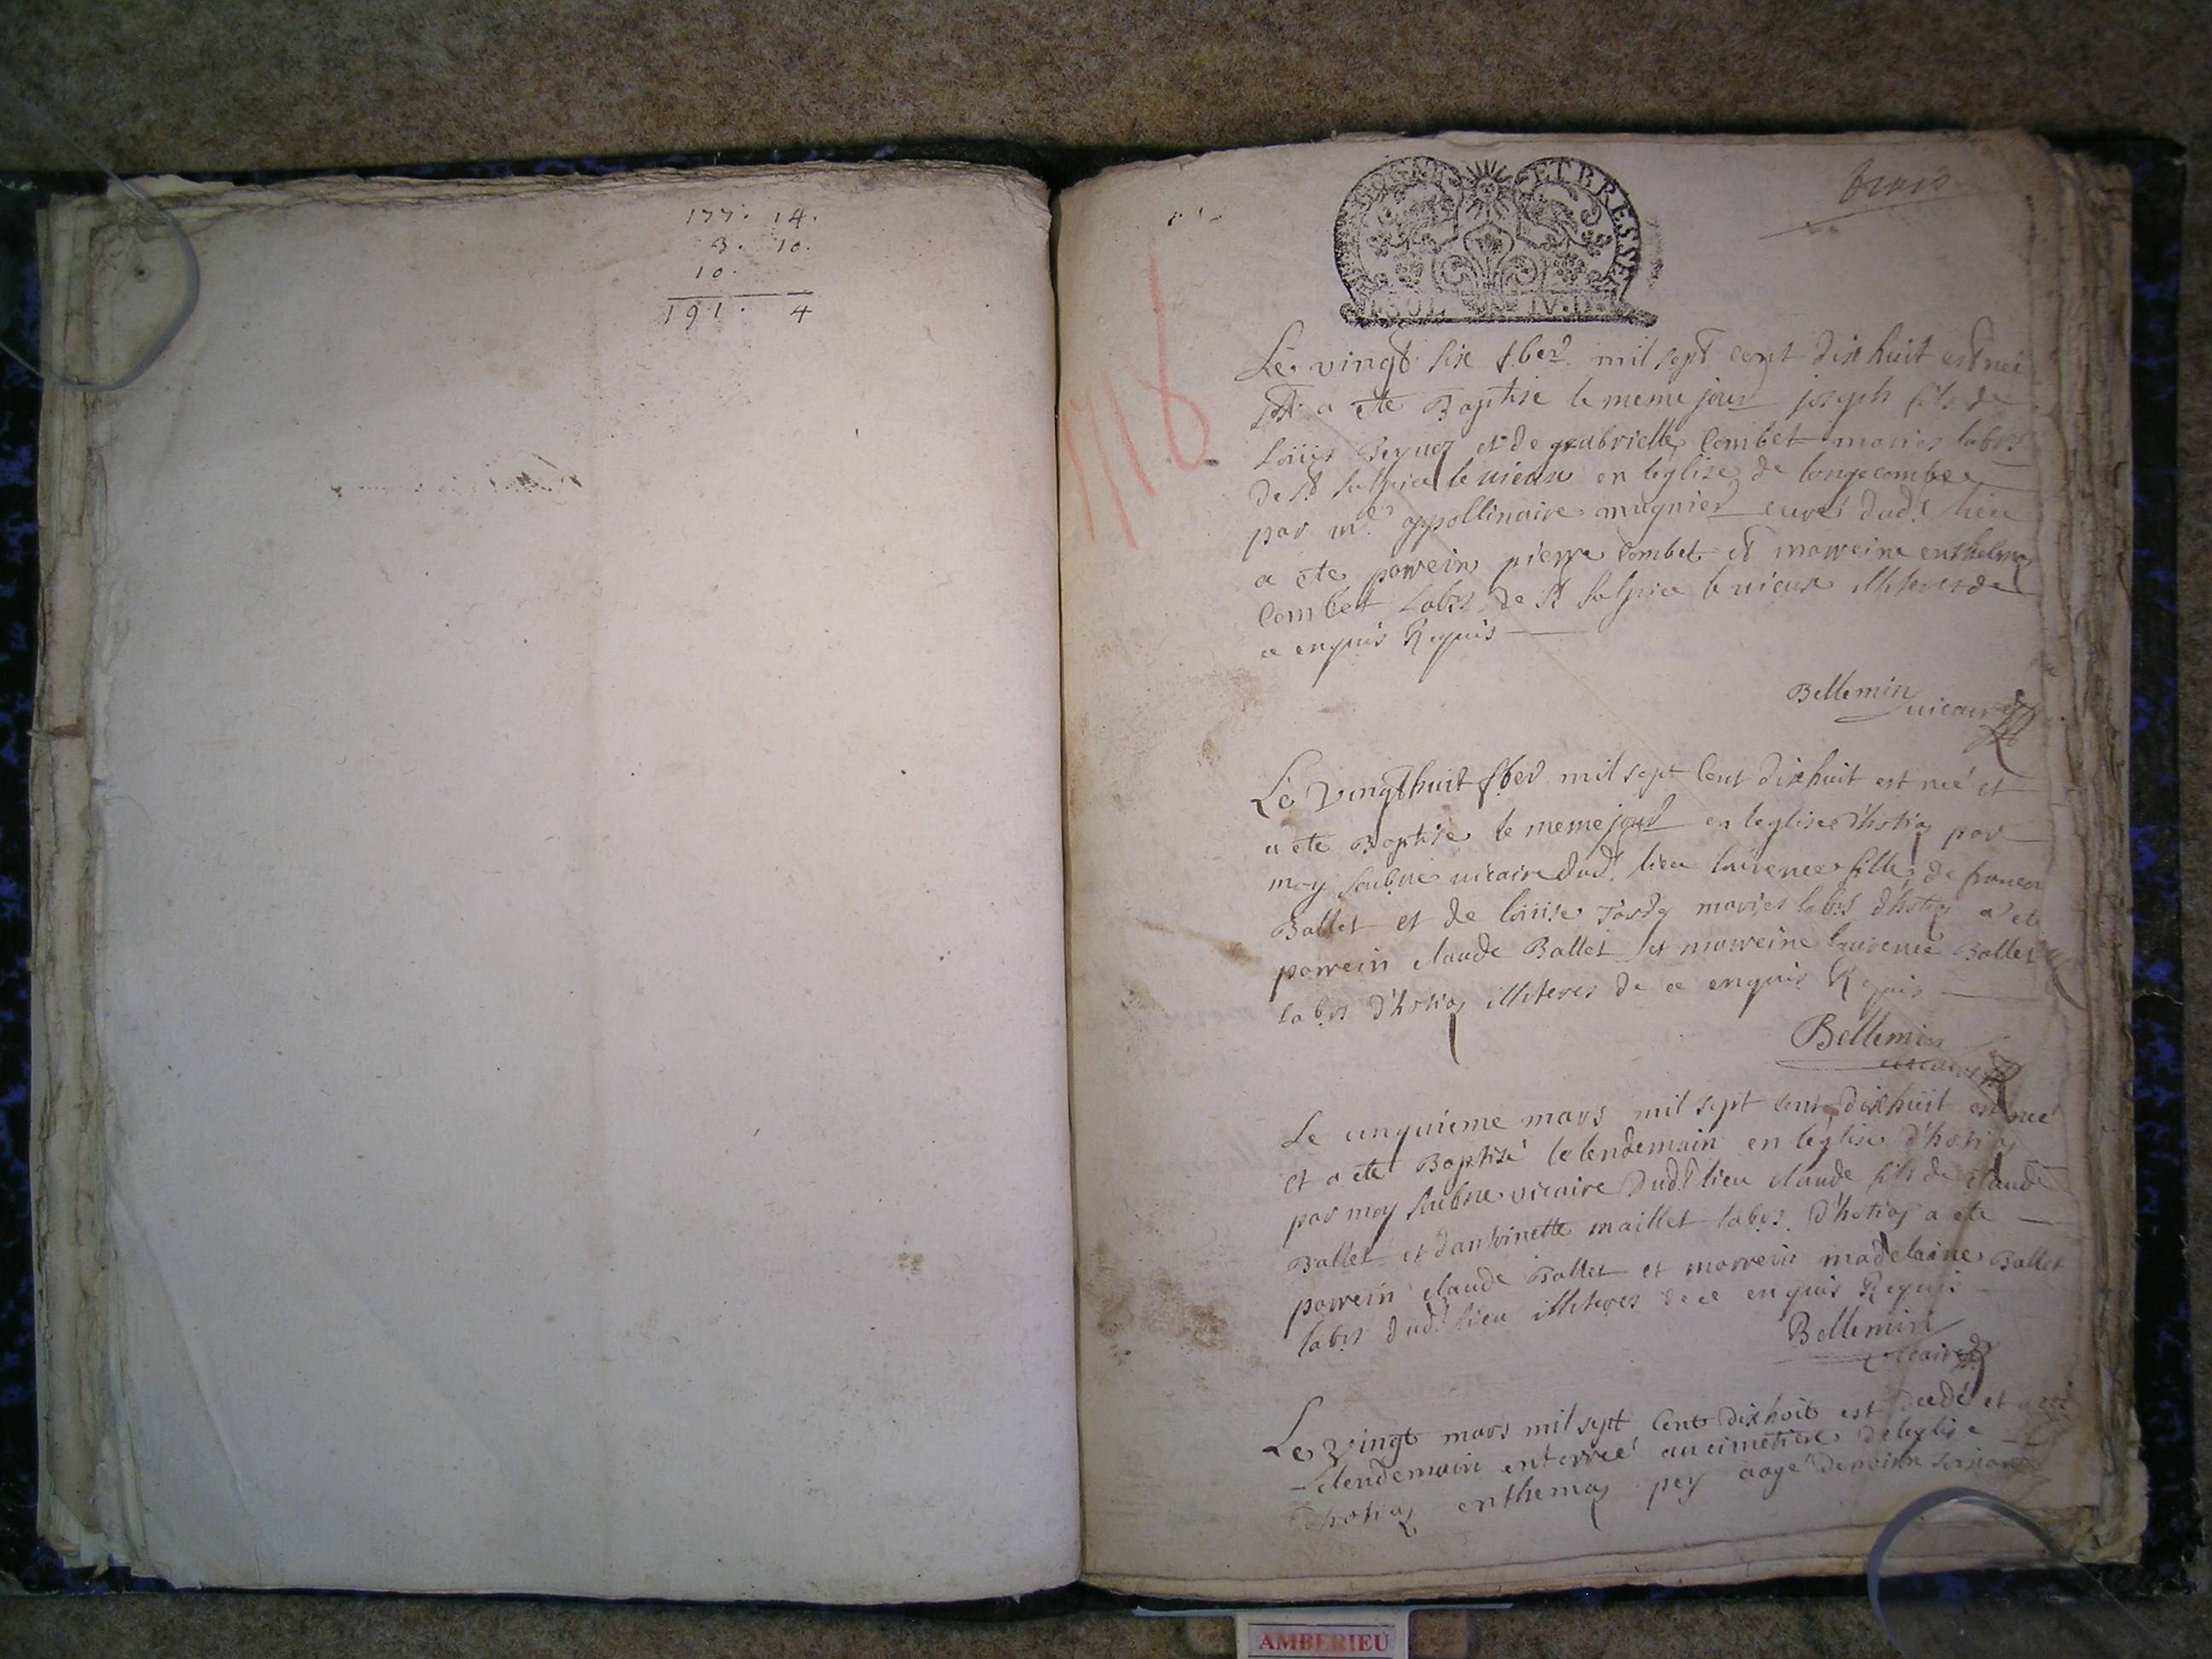 177. 14.
3. 10.
10.
191. 4
BOGEY ET BRESSE
SOL IV.D
trois
1718
Le vingt six fber mil sept cent dix huit est nee
et a ete Baptise le meme jour joseph fils de
Loüis et de gabrielle Combet maries labrs
de st sulpice le vieux en leglise de longecombe
par mre appollinaire mugnier curé dud. lieu
a ete parrein pierre Combet et marreine enthelma
Combet labrs de st sulpice le vieux illiteres de
ce enquis Requis
Bellemin
vicaire
Le vingthuit fber mil sept Cent dixhuit est neé et
a ete Baptise le meme jour en leglise d'hotiaz par
moy soubne vicaire dud. lieu laurence fille de francois
Ballet et de loüise Tardy maries labrs d'hotiaz a ete
parrein claude Ballet et marreine laurence Ballet
labrs d'hotiaz illiteres de ce enquis Requis
Bellemin
vicaire
Le cinquieme mars mil sept cent dixhuit est neé
et a ete Baptisé le lendemain en léglise d'hotiaz
par moy soubne vicaire dud. lieu claude fils de claude
Ballet et dantoinette maillet labrs. d'hotiaz a ete
parrein claude Ballet et marrein madelaine Ballet
labrs dud. lieu illiteres de ce enquis Requis
Bellemin
vicaire
Le vingt mars mil sept Cent dixhoit est decedé et a eté
lelendemain enterreé au cimetiere deleglise
dhotiaz enthema pey aagé denviron
AMBERIEU